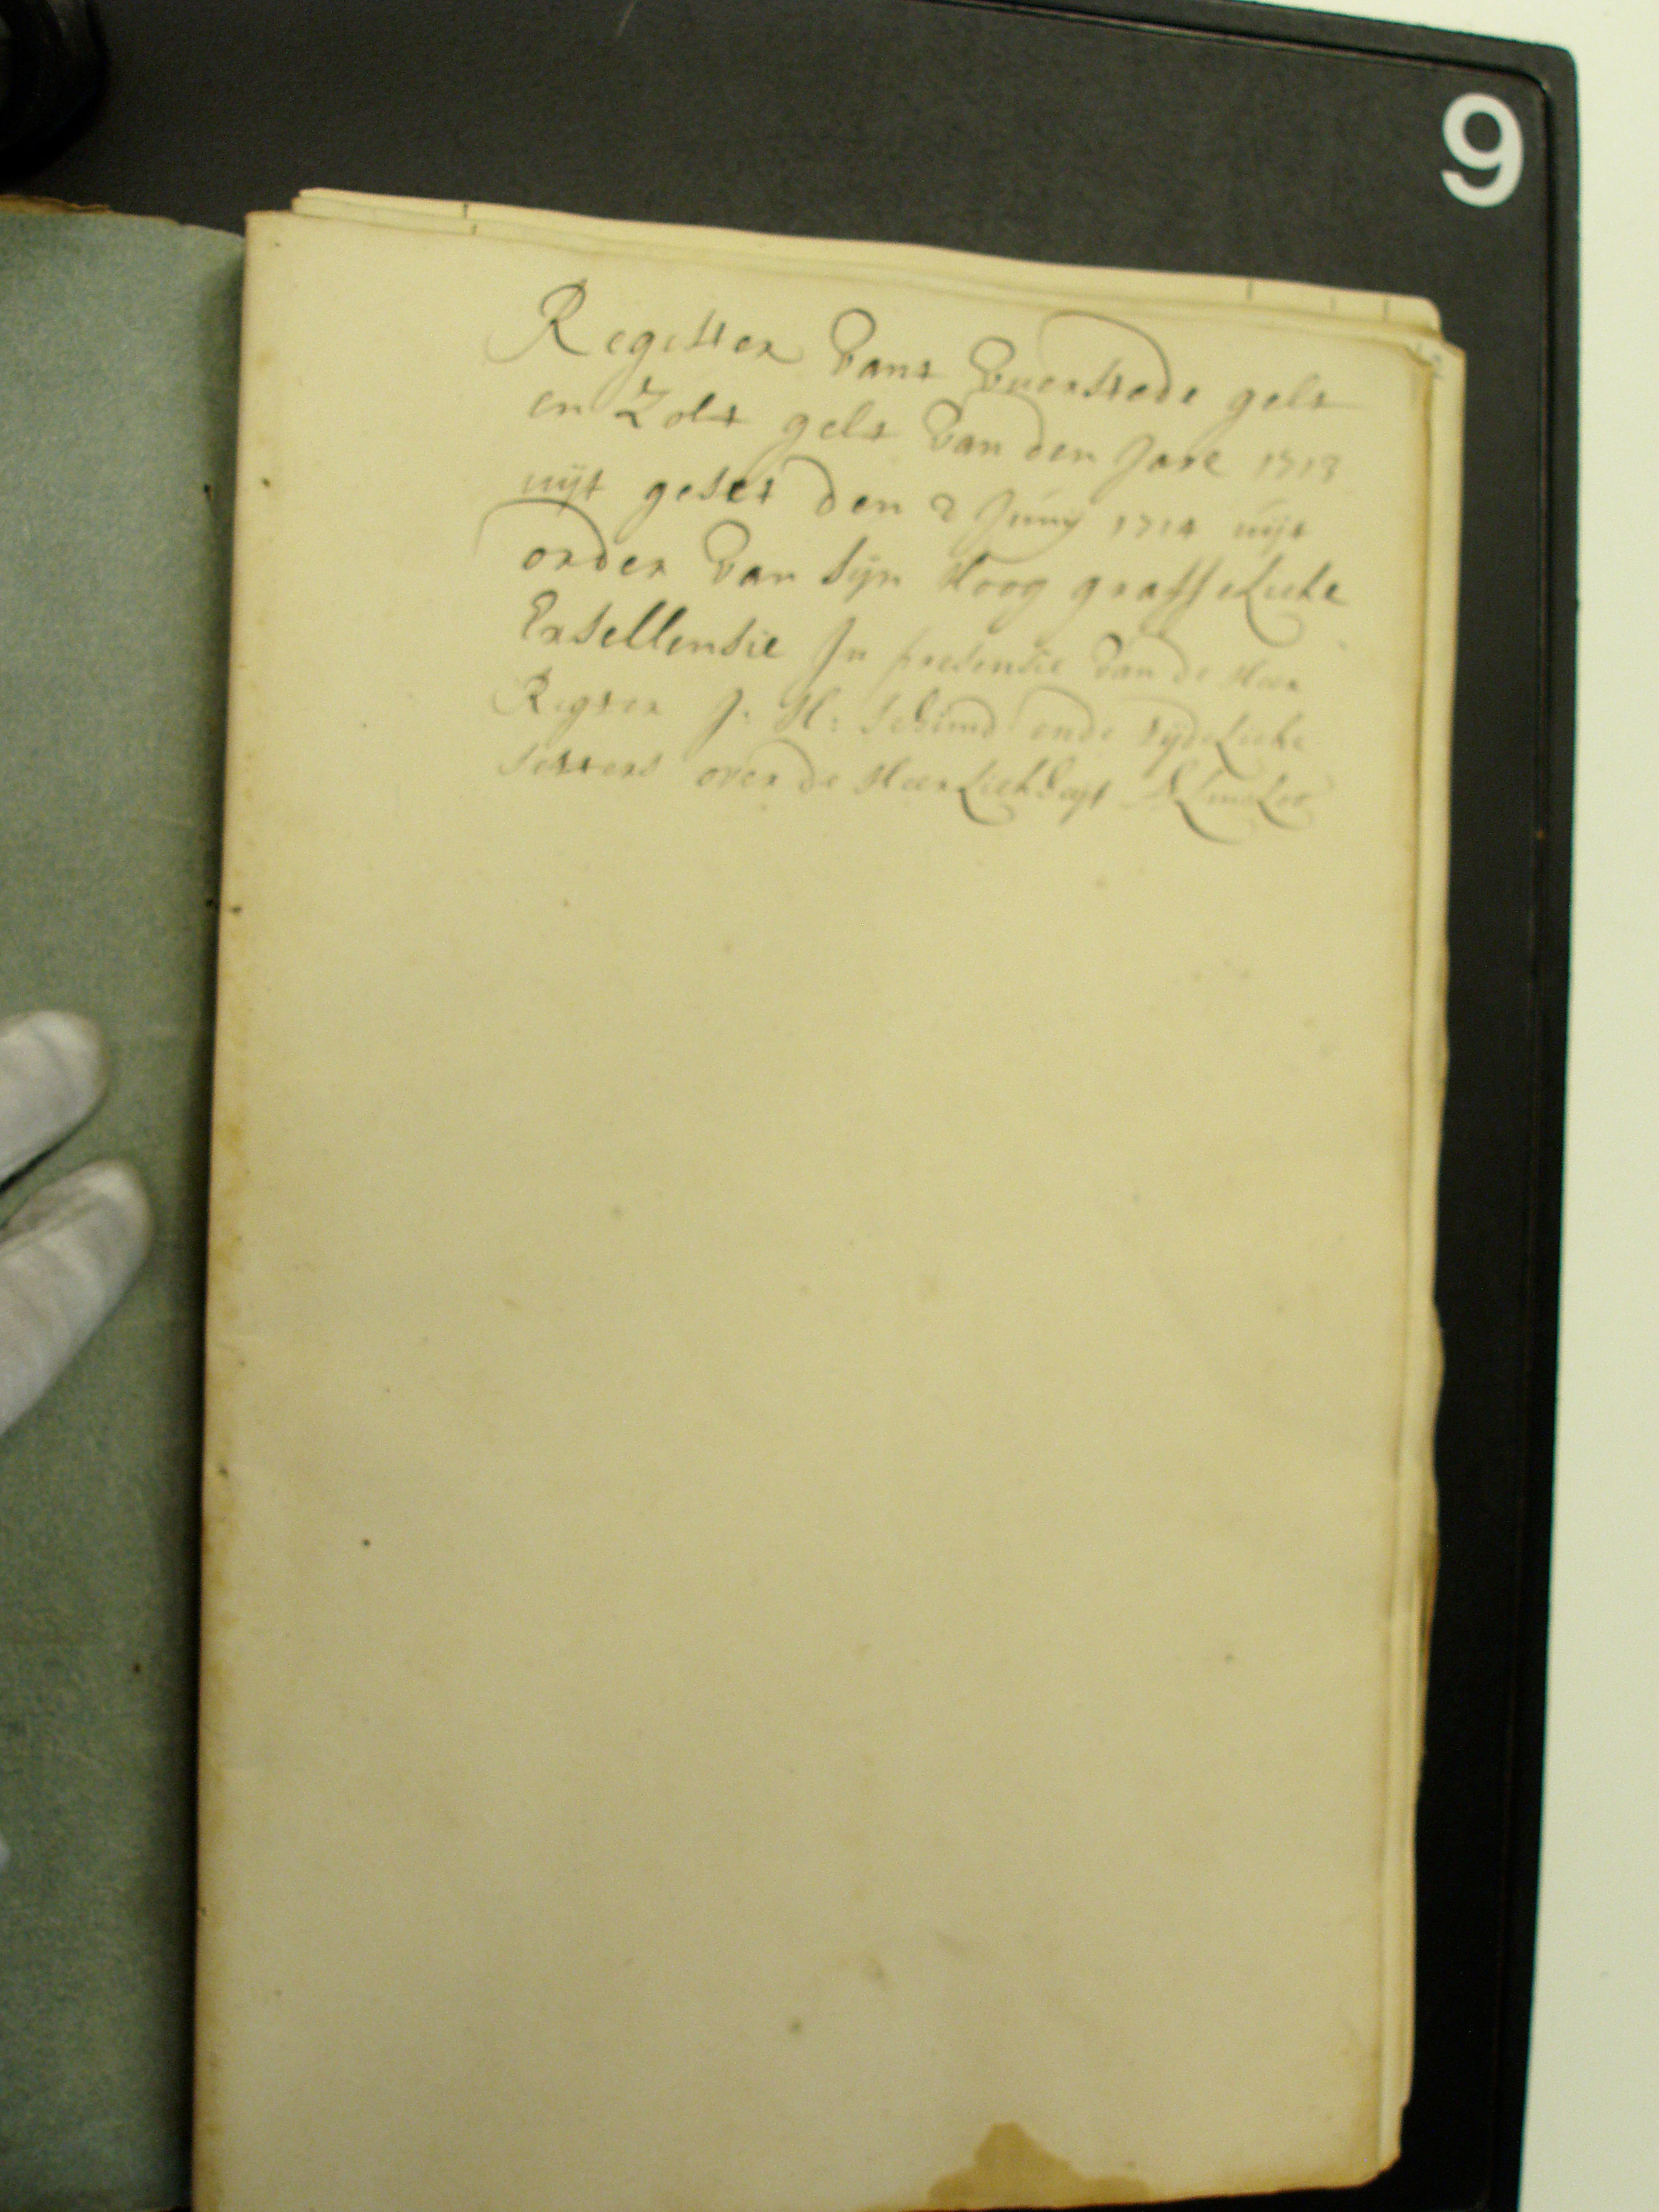 9
Register Vant Vuerstede gelt
en Zolt gelt Van den Jare 1713
uijt geset den 2 Junij 1714 uijt
order Van Sijn Hoog graffeLicke
Exsellensie In presensie Van de Heer
Rigter J: H: Schimd ende tijdeLicke
Setters over de HeerLickheijt ALmeLoo